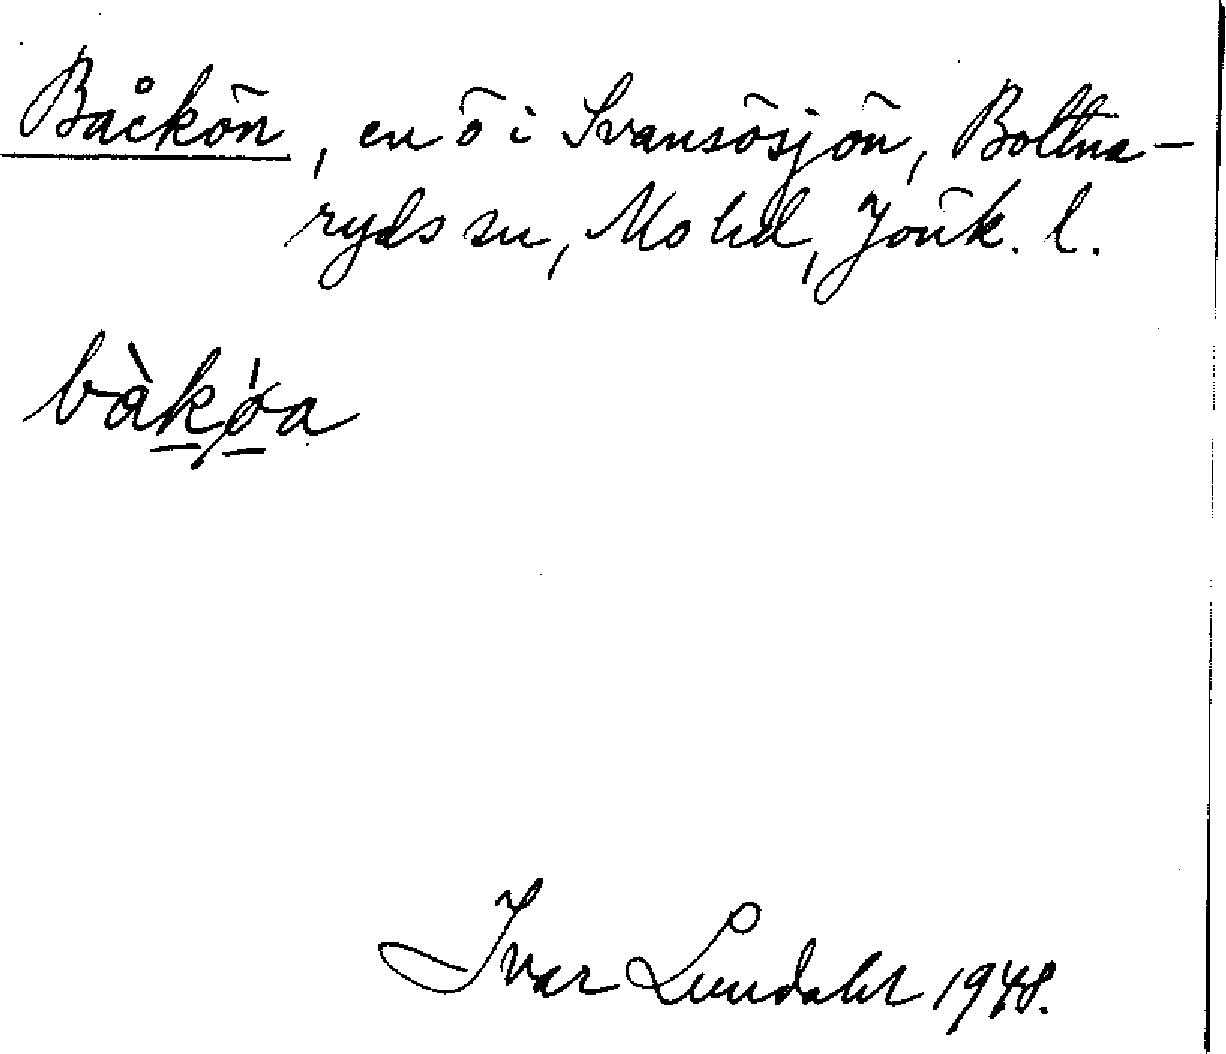 Båckön, en ö i Svansösjön, Bottna-
ryds sn, Mo hd, Jönk. l.
bàkø̀a
Ivar Lundahl 1948.